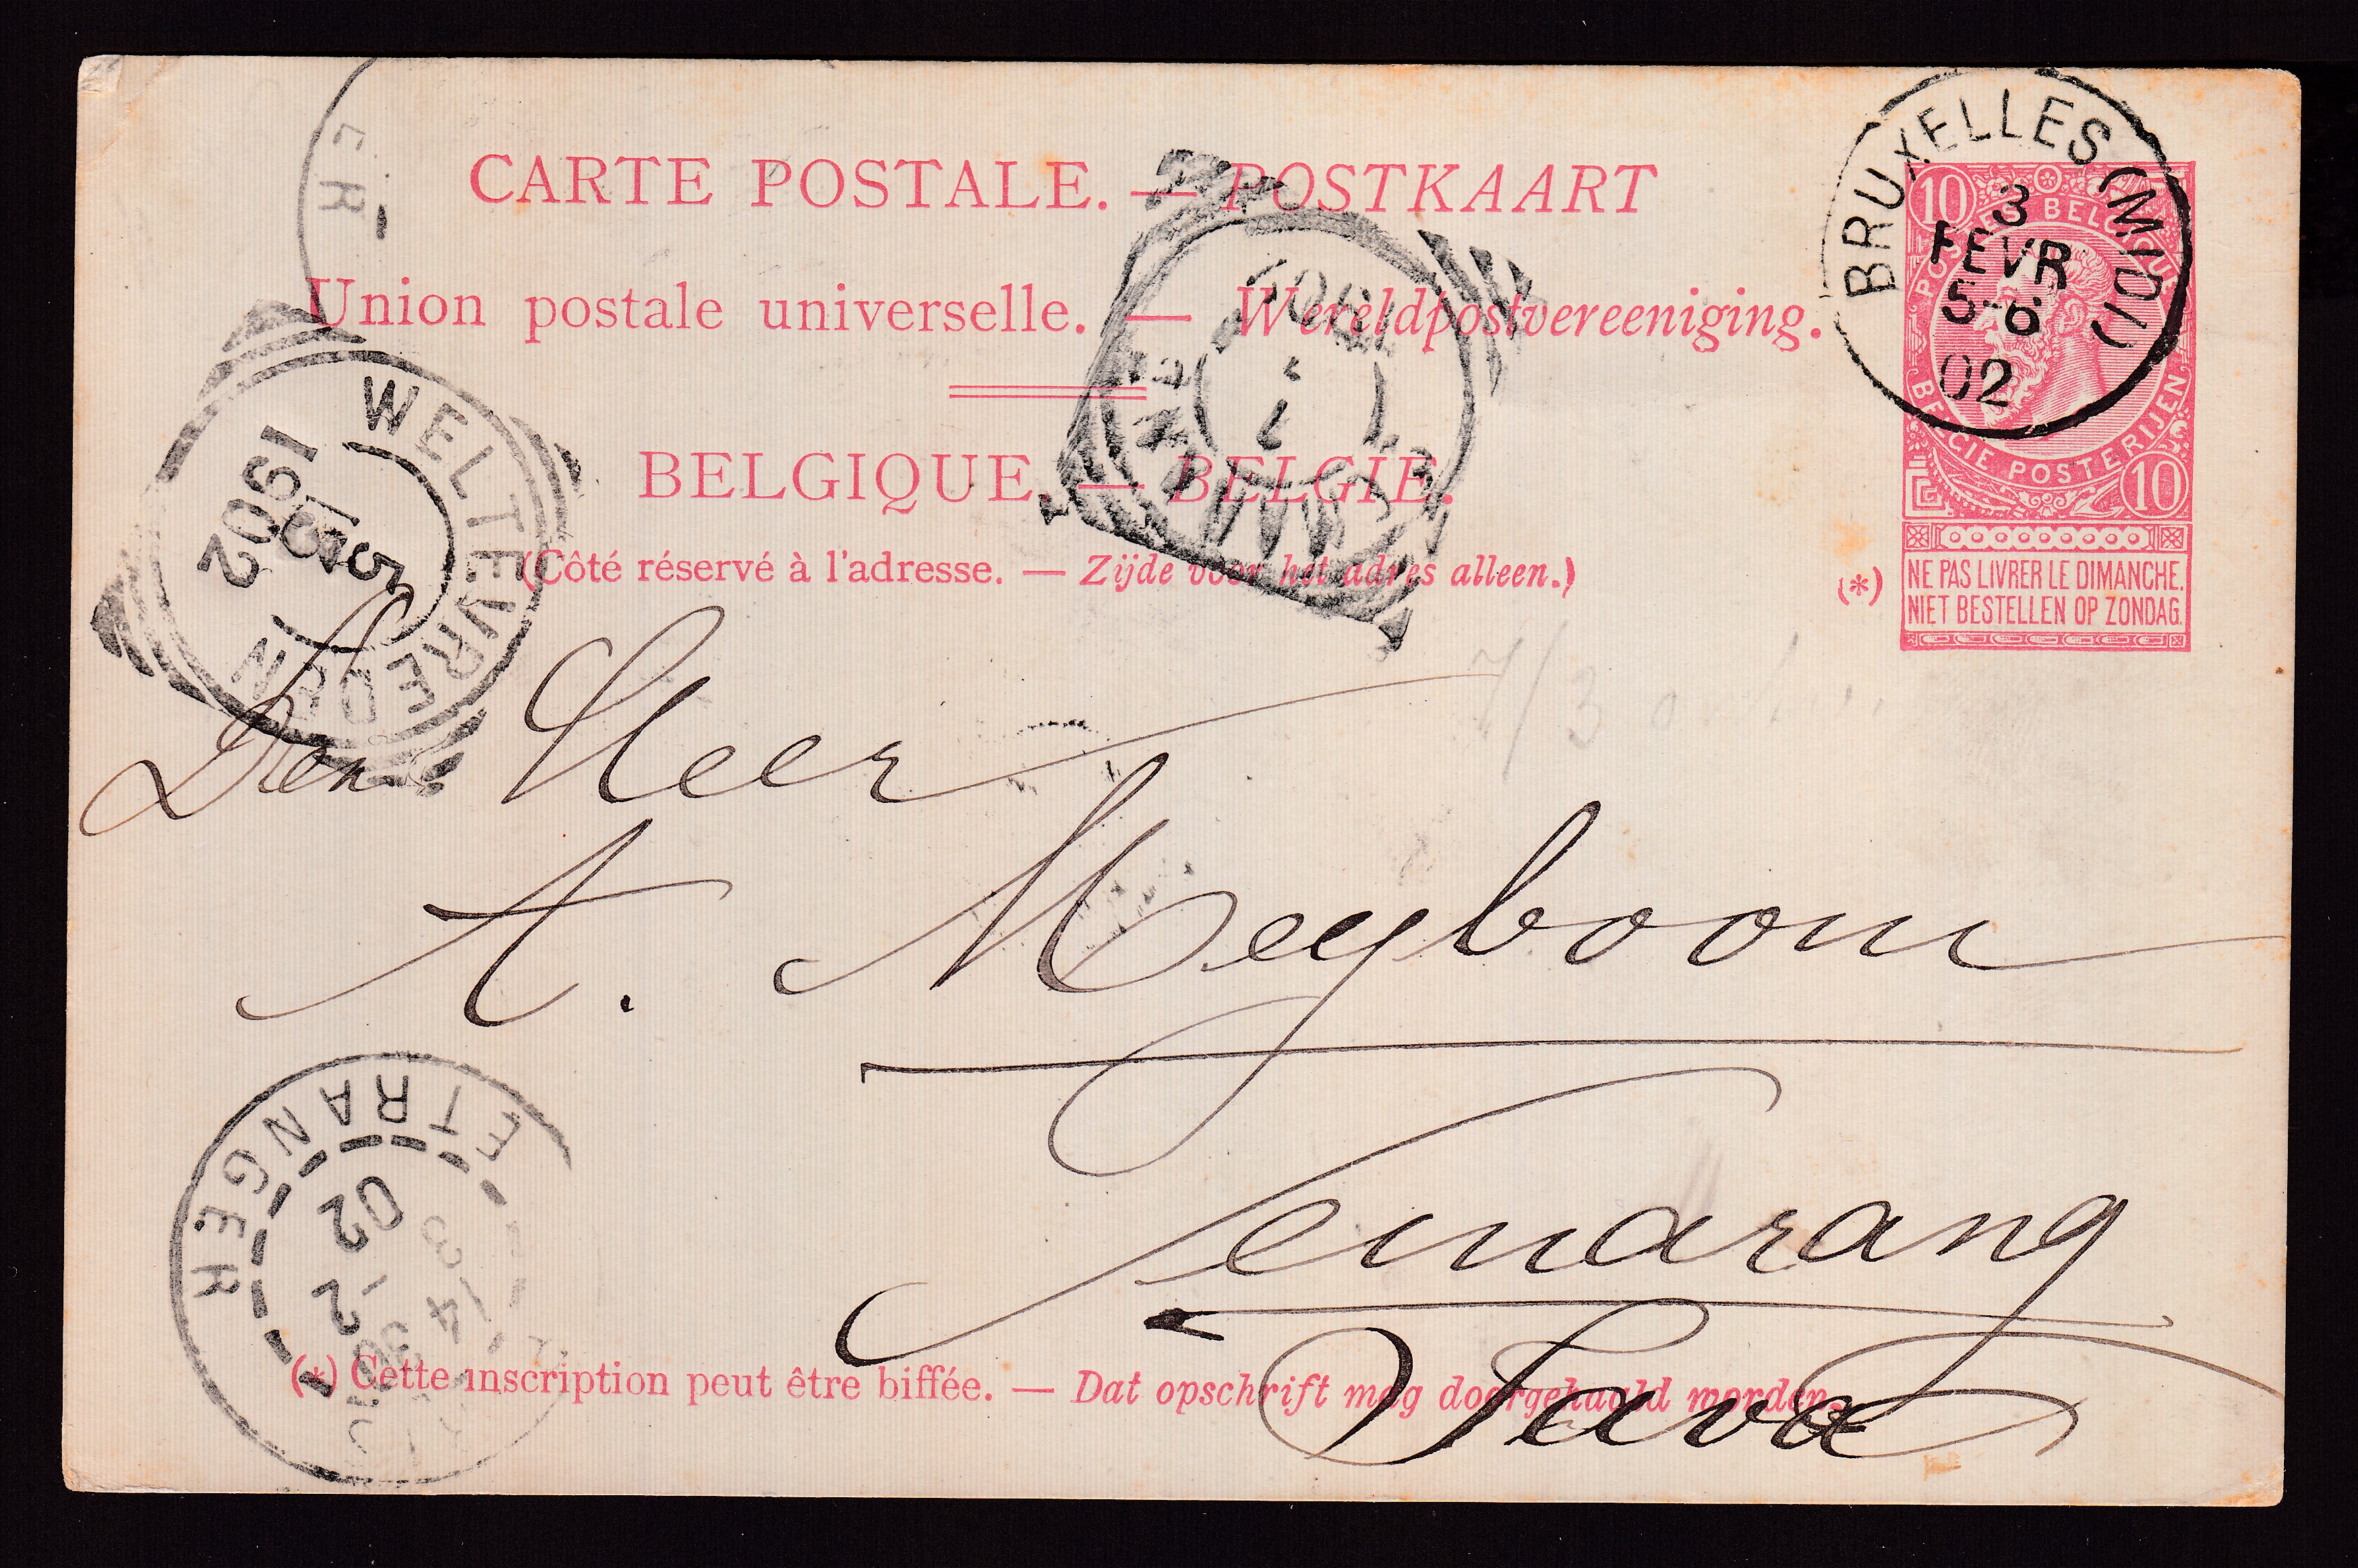 CARTE POSTALE. — POSTKAART
Union postale universelle. — Wereldpostvereeniging.
BELGIQUE. — BELGIE.
(Côté réservé à l'adresse. — Zijde voor het adres alleen.)
BRUXELLES (MIDI)
3
FEVR
5-6
02
10
POSTES BELGIQUE
BELGIE POSTERIJEN
10
(*)
NE PAS LIVRER LE DIMANCHE.
NIET BESTELLEN OP ZONDAG.
ER
WELTEVREDEN
1902
Den Heer
A. Meyboom
Semarang
Java
ETRANGER
02
-2
3
14 30
(*) Cette inscription peut être biffée. — Dat opschrift mag doorgehaald worden.